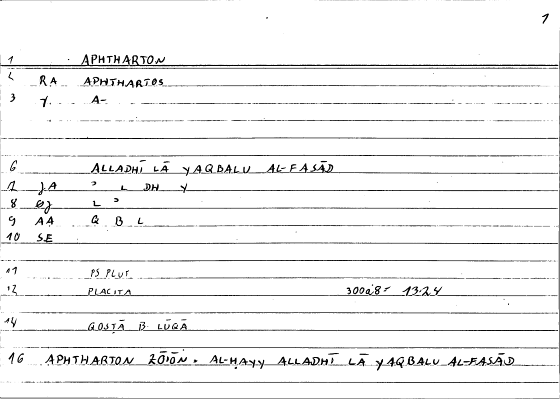 1
1 APHTHARTON
2 RA APHTHARTOS
3 A-
6 ALLADHĪ LĀ YAQBALU AL-FASĀD
JA ʾ L DH Y
8 L ʾ
9 AA Q B L
10 SE
11 PS PLUT
12 PLACITA 300a8- 13.24
14 QOSṬĀ B. LŪQĀ
16 APHTHARTON ZŌION. AL-ḤAYY ALLADHĪ LĀ YAQBALU AL-FASĀD